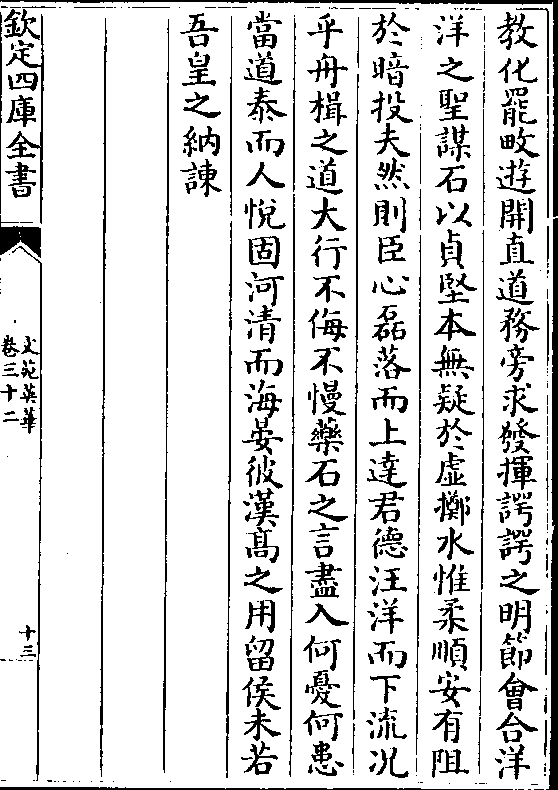 教化罷畋遊開直道務旁求發揮諤諤之明節會合洋
洋之聖謀石以貞堅本無疑於虛擲水惟柔順安有阻
於暗投夫然則臣心磊落而上達君德汪洋而下流况
乎舟楫之道大行不侮不慢藥石之言盡入何憂何患
當道泰而人悅固河清而海晏彼漢高之用留侯未若
吾皇之納諫
欽定四庫全書
文苑英華
卷三十二
十三